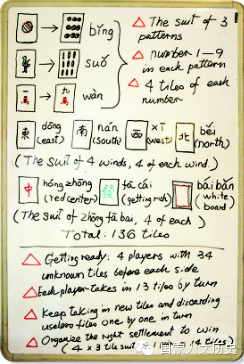 → bǐng
→ suǒ
→ wàn
△ The suit of 3 patterns
△ number 1-9 in each pattern
△ 4 tiles of each number
東 dōng (east) 南 nán (south) 西 xī (west) 北 běi (north)
(The suit of 4 winds, 4 of each wind.)
中 hóng zhōng (red center) 發 fā cái (getting rich) bái bǎn white board
(The suit of zhōng fā bai, 4 of each)
Total: 136 tiles
△ Getting ready: 4 players with 34 unknown tiles before each side
△ Each player takes in 13 tiles by turn
△ Keep taking in new tiles and discarding useless tiles one by one in turn
△ Organize the right settlement to win
(4 x 3 tile suit 14 tiles)
国家人文历史